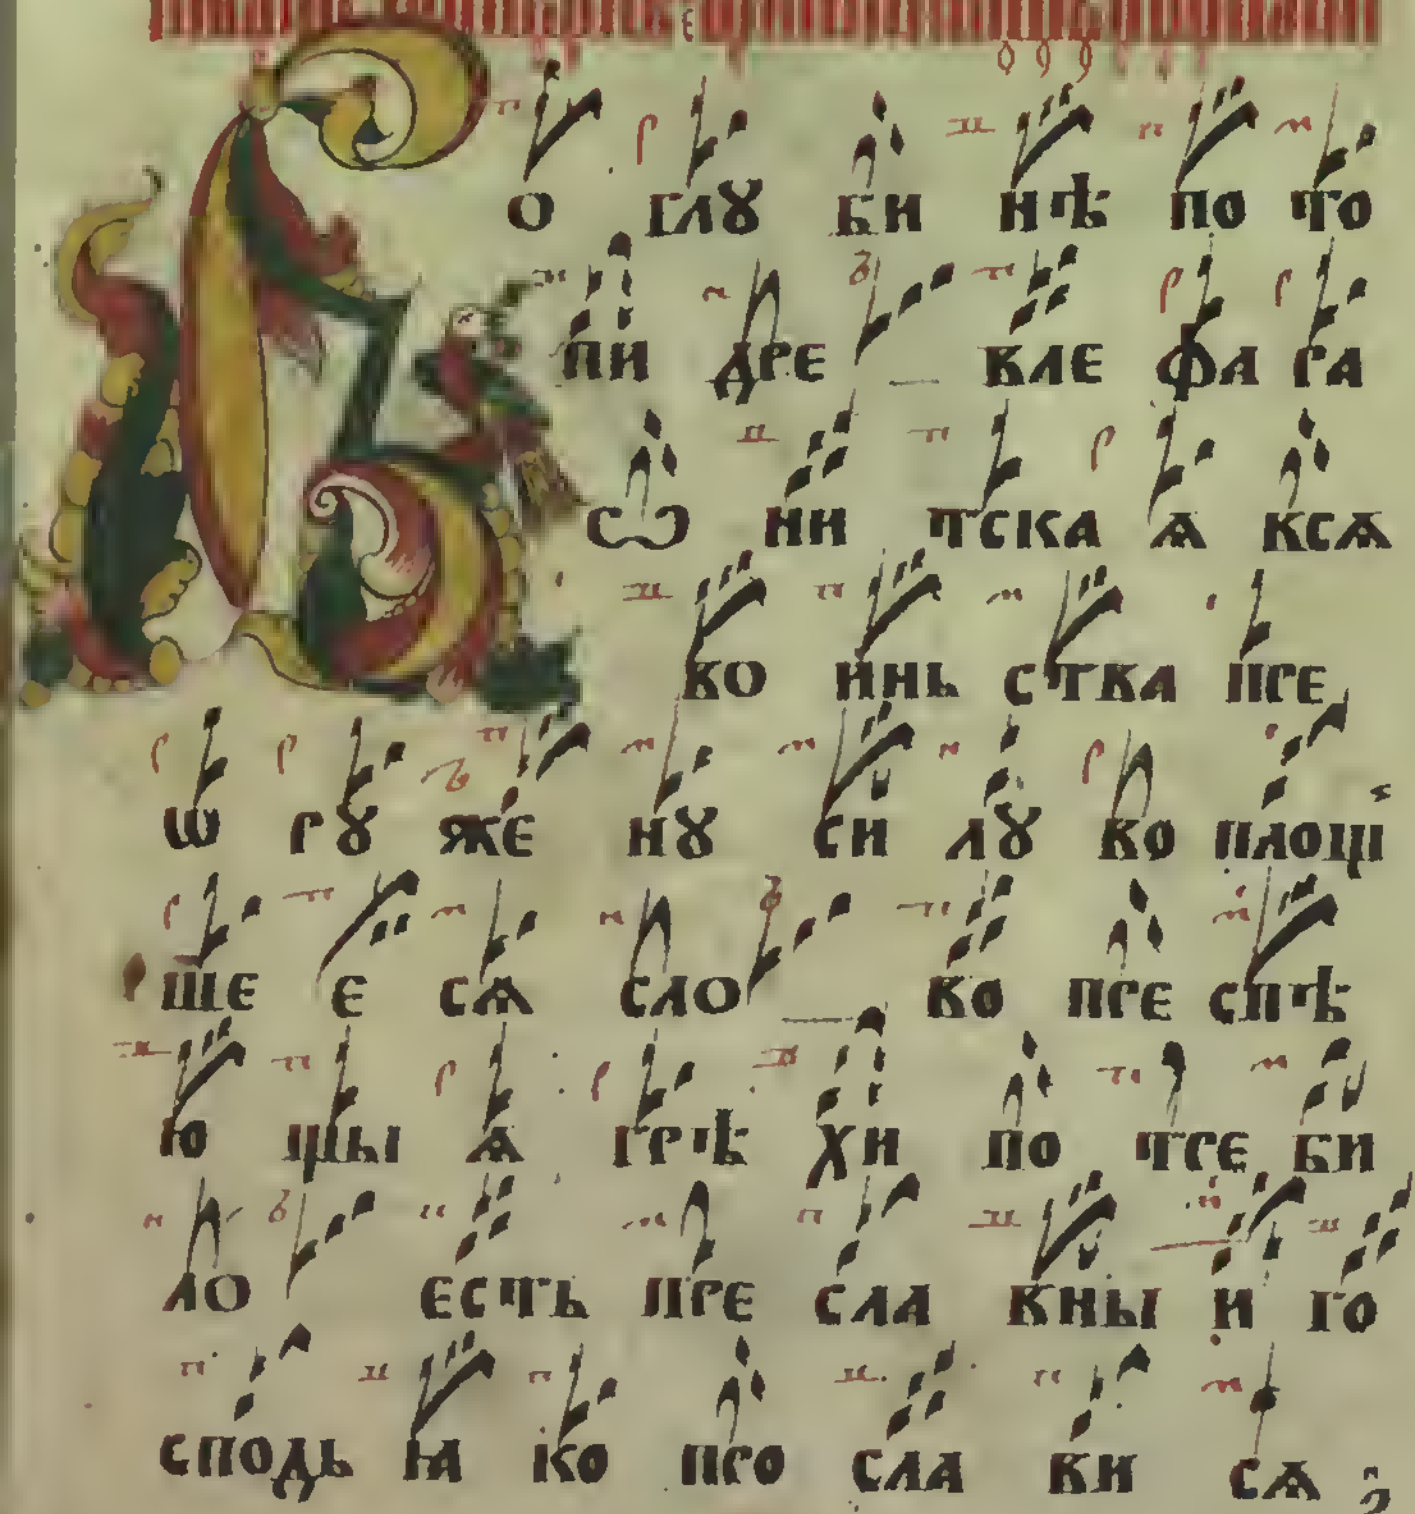 Во глꙋ би нѣ по то
пи дре вле фа ра
ѡ ни тска ѧ всѧ
во инь ства пре
ѡ рꙋ же нꙋ си лꙋ во площі
ше е сѧ сло во пре спѣ
ю щы ѧ грѣ хи по тре би
ло есть пре сла вны и го
сподь ꙗ ко про сла ви сѧ